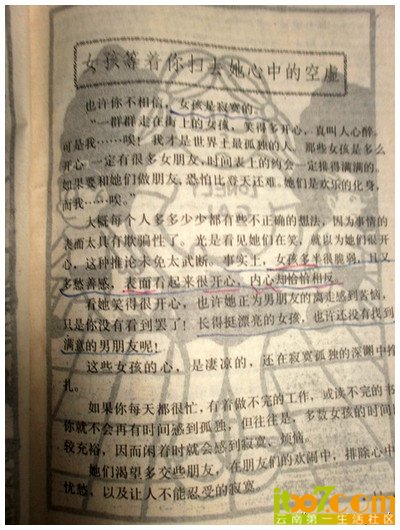 女孩等着你扫去她心中的空虚
也许你不相信，女孩是寂寞的。
“一群群走在街上的女孩，笑得多开心，真叫人心醉。
可是我……唉！我才是世界上最孤独的人，那些女孩是多么
开心，一定有很多女朋友，时间表上的约会一定排得满满的。
如果要和她们做朋友，恐怕比登天还难。她们是欢乐的化身，
而我……唉。
大概每个人多多少少都有些不正确的想法，因为事情的
表面太具有欺骗性了。光是看见她们在笑，就以为她们很开
心，这种推论未免太武断。事实上，女孩多半很脆弱，且又
多愁善感，表面看起来很开心，内心却恰恰相反。
看她笑得很开心，也许她正为男朋友的离走感到苦恼，
只是你没有看到罢了！长得挺漂亮的女孩，也许还没有找到
满意的男朋友呢！
这些女孩的心，是凄凉的，还在寂寞孤独的深渊中挣
扎。
如果你每天都很忙，有着做不完的工作，或读不完的书，
你就不会再有时间感到孤独，但往往是，多数女孩的时间比
较充裕，因而闲着时就会感到寂寞、烦恼。
她们渴望多交些朋友，在朋友们的欢闹中，排除心中
忧愁，以及让人不能忍受的寂寞。
云南第一生活社区